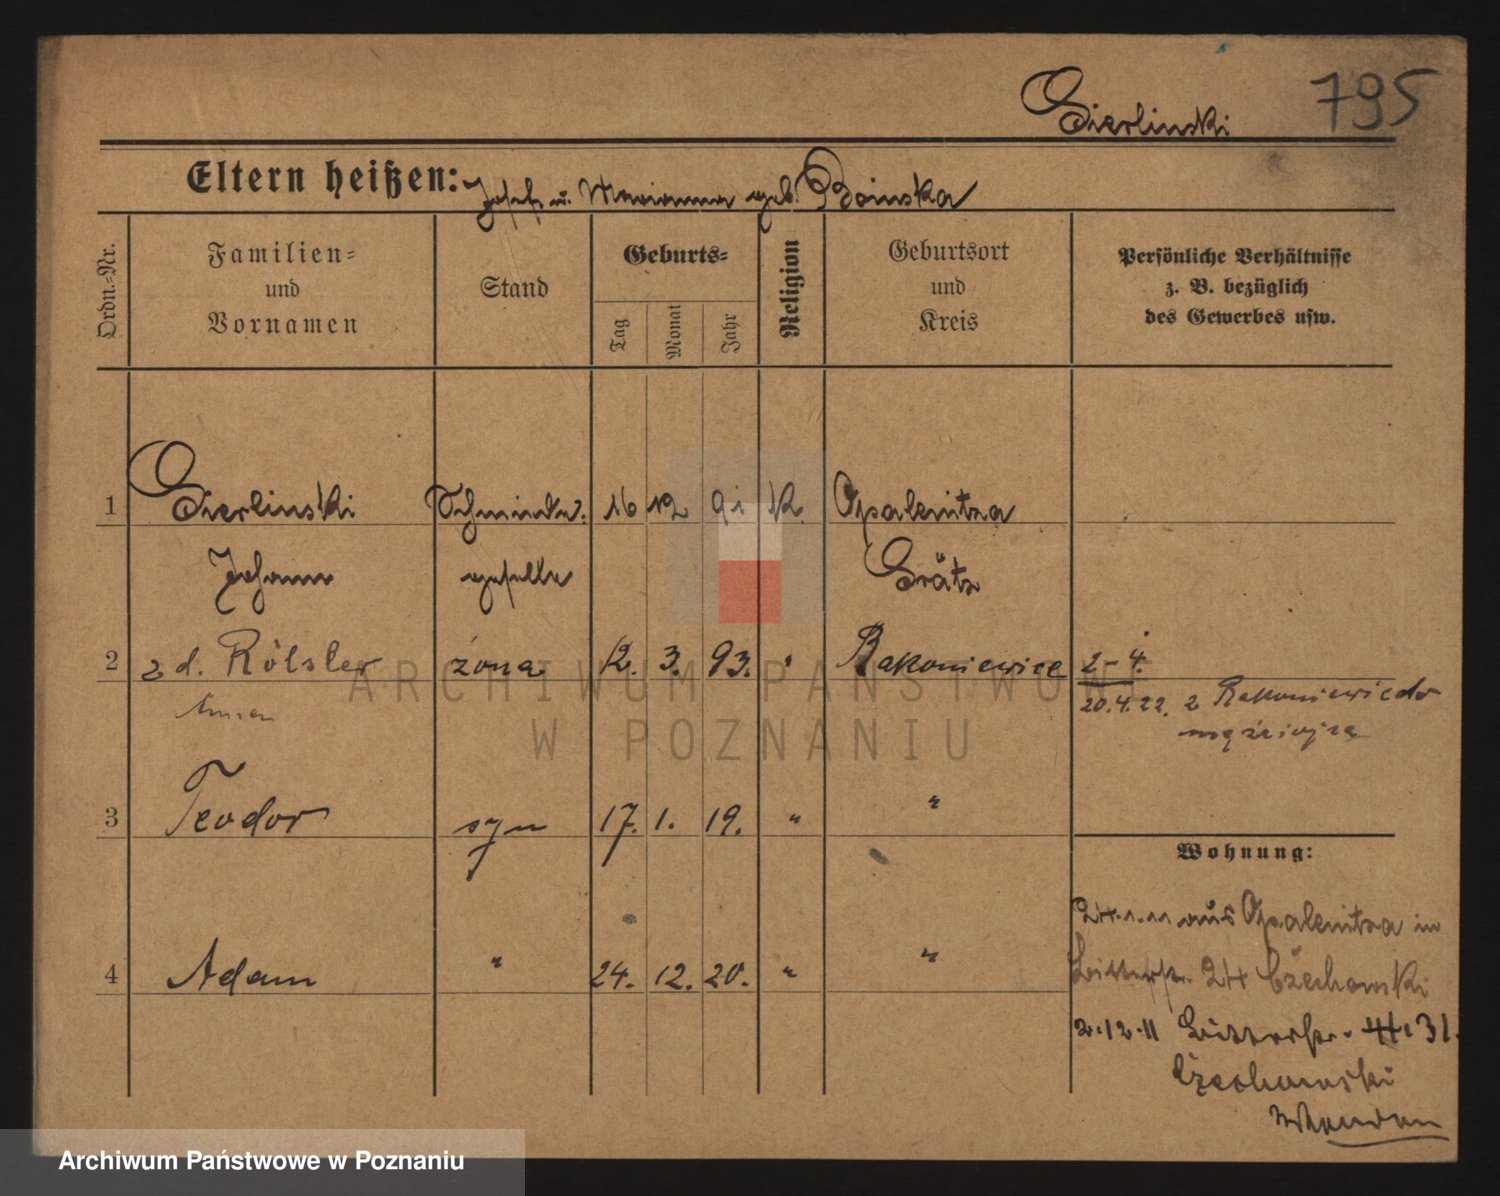 Sierlinski 795
Eltern heißen: Josef u. Marianna geb. Boinska
Ordn.=Nr.
Familien=
und
Vornamen
Stand
Geburts=
Tag
Monat
Jahr
Religion
Geburtsort
und
Kreis
Persönliche Verhältnisse
z. B. bezüglich
des Gewerbes usw.
1 Sierlinski Schmiede= 16 12 91 K. Opalenitza
Johann geselle Grätz
2 z d. Rölsler żona 12. 3. 93. " Rakoniewice 2-4.
20.4.22. z Rakoniewic do
męża
3 Teodor syn 17. 1. 19. " "
Wohnung:
24.1.11 aus Opalenitza in
24 Czechowski
4 Adam " 24. 12. 20. " "
2.12.11 31.
Czechowski
ARCHIWUM PAŃSTWOWE
W POZNANIU
Archiwum Państwowe w Poznaniu